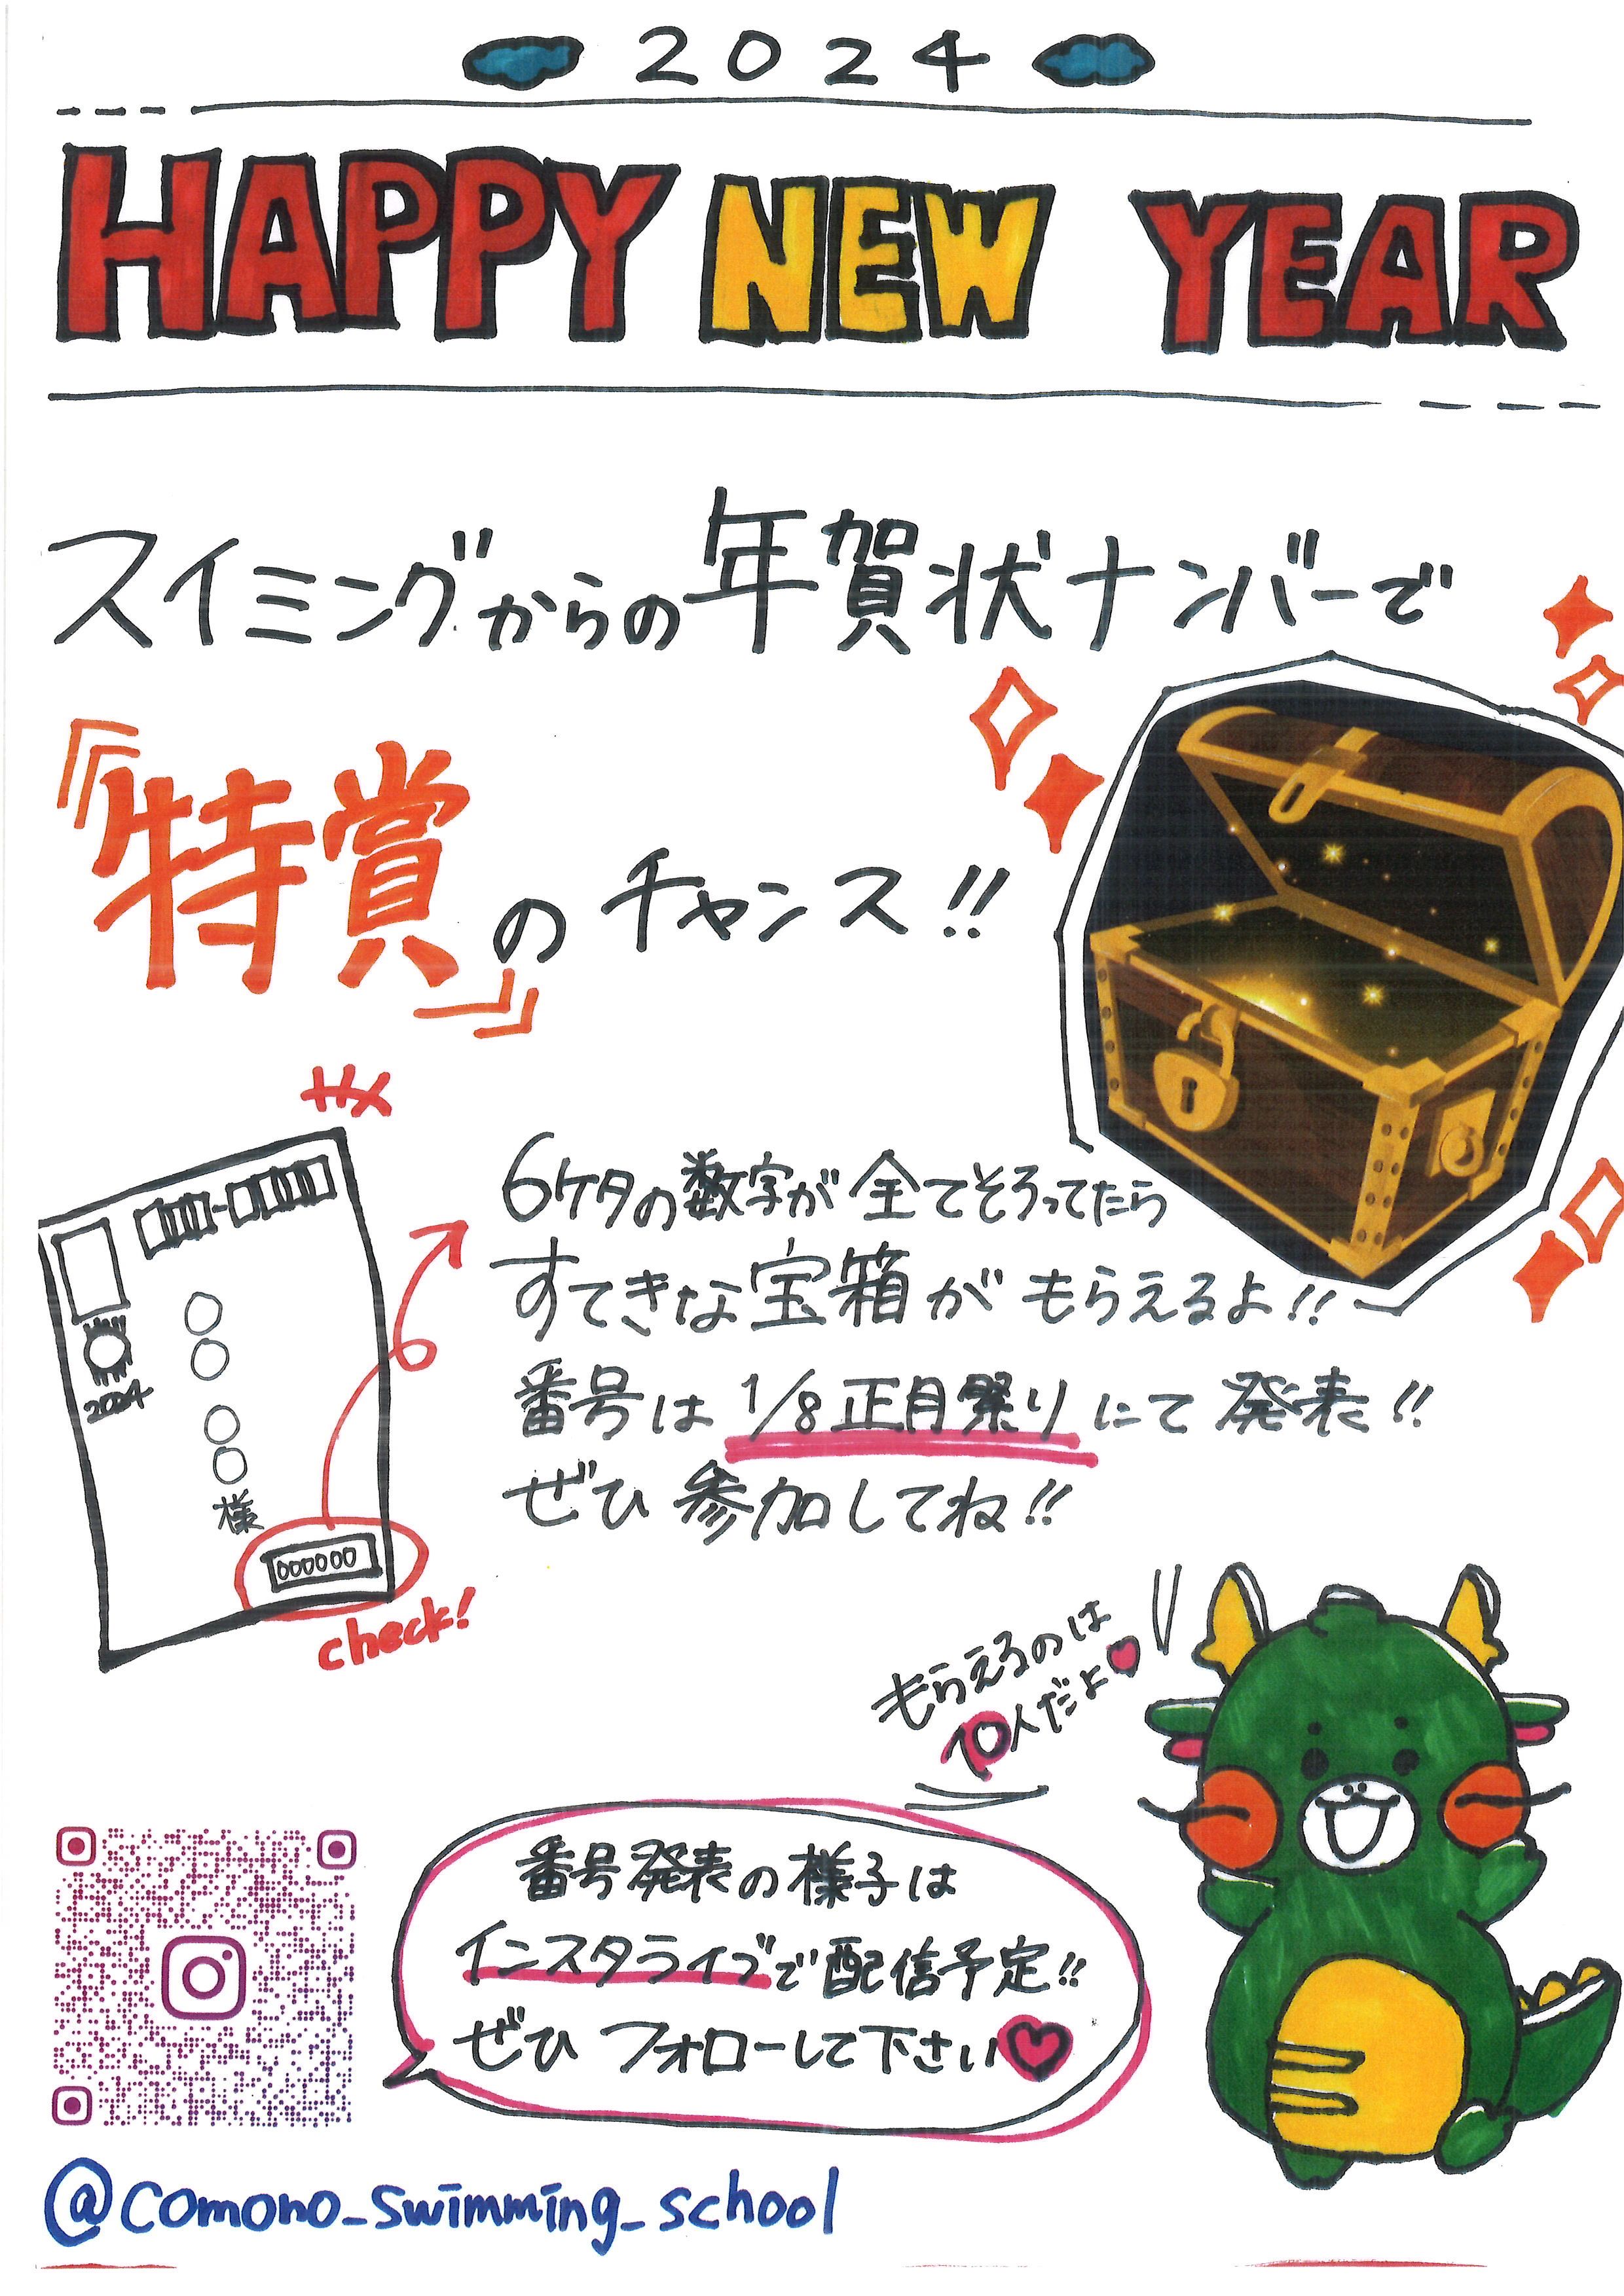 2024
HAPPY NEW YEAR
スイミングからの年賀状ナンバーで
『特賞』のチャンス!!
6ケタの数字が全てそろってたら
すてきな宝箱がもらえるよ!!
番号は1/8正月祭りにて発表!!
ぜひ参加してね!!
2024
〇〇〇〇様
000000
check!
もらえるのは
10人だよ
番号発表の様子は
インスタライブで配信予定!!
ぜひフォローして下さい
@comono_swimming_school